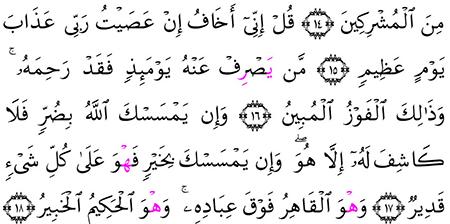 مِنَ ٱلْمُشْرِكِينَ ﴿١٤﴾ قُلْ إِنِّىٓ أَخَافُ إِنْ عَصَيْتُ رَبِّى عَذَابَ
يَوْمٍ عَظِيمٍ ﴿١٥﴾ مَّن يَصْرِفْ عَنْهُ يَوْمَئِذٍ فَقَدْ رَحِمَهُۥ ۚ
وَذَٰلِكَ ٱلْفَوْزُ ٱلْمُبِينُ ﴿١٦﴾ وَإِن يَمْسَسْكَ ٱللَّهُ بِضُرٍّ فَلَا
كَاشِفَ لَهُۥٓ إِلَّا هُوَ ۖ وَإِن يَمْسَسْكَ بِخَيْرٍ فَهْوَ عَلَىٰ كُلِّ شَىْءٍ
قَدِيرٌ ﴿١٧﴾ وَهْوَ ٱلْقَاهِرُ فَوْقَ عِبَادِهِۦ ۚ وَهْوَ ٱلْحَكِيمُ ٱلْخَبِيرُ ﴿١٨﴾